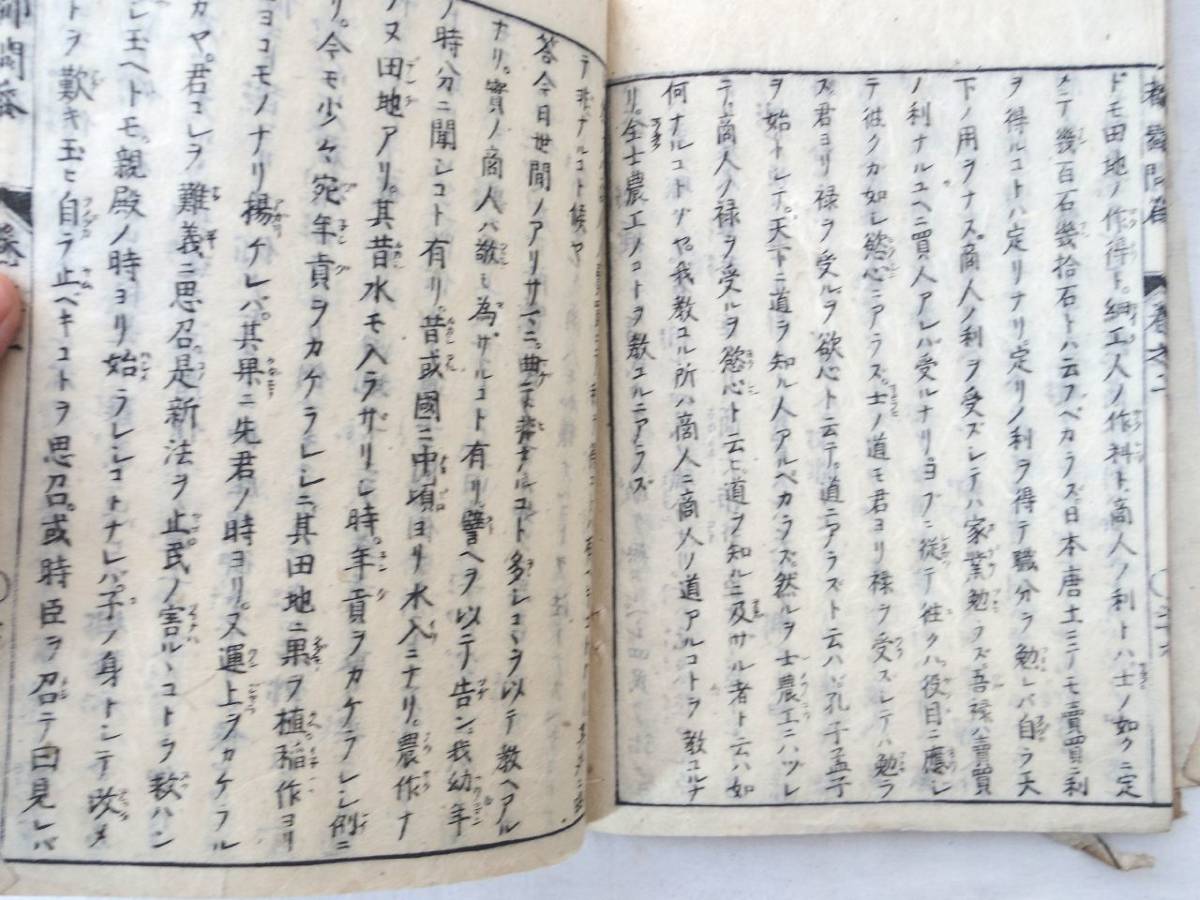 都鄙問答 卷之二
ドモ田地ノ作得ト細工人ノ作料ト商人ノ利トハ士ノ如クニ定
メテ幾百石幾拾石トハ云フベカラズ日本唐土ニテモ賣買ニ利
ヲ得ルコトハ定リナリ定リノ利ヲ得テ職分ヲ勉レバ自ラ天
下ノ用ヲナス商人ノ利ヲ受ズシテハ家業勉ラズ吾禄ハ賣買
ノ利ナルユヘニ買人アレバ受ルナリヨブニ從テ往クハ役目ニ應シ
テ往クカ如シ慾心ニアラズ士ノ道モ君ヨリ禄ヲ受ズシテハ勉ラ
ズ君ヨリ禄ヲ受ルヲ欲心ト云テ道ニアラズト云ハヾ孔子孟子
ヲ始トシテ天下ニ道ヲ知ル人アルベカラズ然ルヲ士農工ニハヅレ
テ商人ノ禄ヲ受ルヲ慾心ト云ヒ道ヲ知ルニ及ザル者ト云ハ如
何ナルコトゾヤ我教ユル所ハ商人ニ商人ノ道アルコトヲ教ユルナ
リ全士農工ノコトヲ教ユルニアラズ
テ非ナルコト候ヤ
答今日世間ノアリサマニ曲テ非ナルコト多シコヽヲ以テ教ヘアル
ナリ實ノ商人ハ敬ミ為ザルコト有リ譬ヘヲ以テ告ン我幼年
ノ時分ニ聞シコト有リ昔或國ニ中頃ヨリ水入ニナリ農作ナ
ラヌ田地アリ其昔水モ入ラザリシ時年貢ヲカケラレシ例ニ
リ今モ少々宛年貢ヲカケラレシニ其田地ニ果ヲ植稲作ヨリ
ヨコモノナリ揚ケレバ其果ニ先君ノ時ヨリ又運上ヲカケラル
カヤ君コレヲ難義ニ思召是新法ヲ止民ノ害ルヽコトヲ救ハン
シ玉ヘトモ親殿ノ時ヨリ始ラレシコトナレバ子ノ身トシテ改メ
トヲ歎キ玉ヒ自ラ止ベキコトヲ思召或時臣ヲ召テ曰見レバ
問答 卷